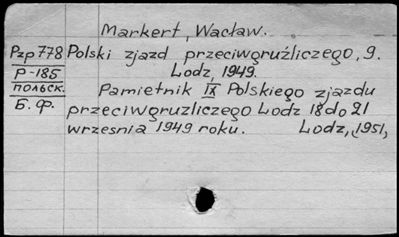 Markert, Wacław.
Pzp 778 Polski zjazd przeciwgruźliczego, 9.
P-185 Lodz, 1949.
польск. Pamietnik IX Polskiego zjazdu
Б. ф. przeciwgruzliczego Lodz 18 do 21
wrzesnia 1949 roku. Lodz, 1951,